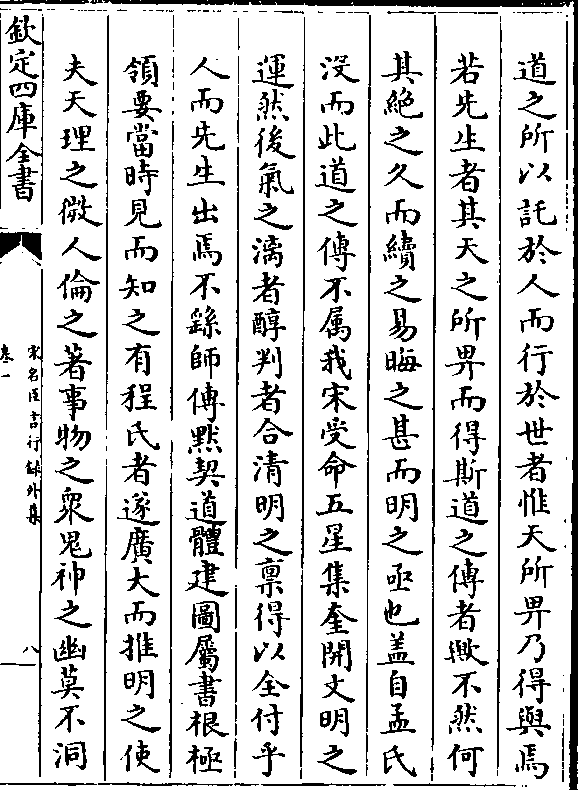 道之所以託於人而行於世者惟天所畀乃得與焉
若先生者其天之所畀而得斯道之傳者歟不然何
其絕之久而續之易晦之甚而明之亟也盖自孟氏
沒而此道之傳不属我宋受命五星集奎開文明之
運然後氣之漓者醇判者合清明之禀得以全付乎
人而先生出焉不繇師傳黙契道體建圖屬書根極
領要當時見而知之有程氏者遂廣大而推明之使
夫天理之微人倫之著事物之衆鬼神之幽莫不洞
欽定四庫全書
宋名臣言行録外集
卷一
八